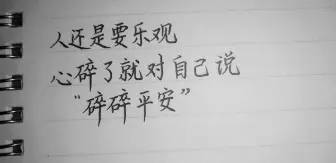 人还是要乐观
心碎了就对自己说
“碎碎平安”